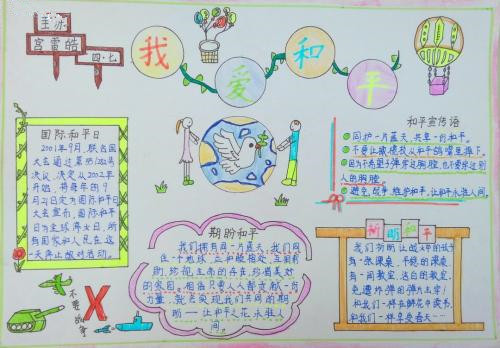 主办
宫雷皓
四·七
我爱和平
国际和平日
2001年9月,联合国
大会通过第55/282号
决议,决定从2002年
开始,将每年的9
月21日定为国际和平日
大会宣布,国际和平
日为全球停火日,所
有国家和人民在这
一天停止敌对活动。
和平宣传语
同护一片蓝天,共享一份和平。
不要让橄榄枝从和平鸽嘴里掉下。
因为不希望子弹穿过胸膛,也不要穿过别
人的胸膛。
避免战争,维护和平,让和平永驻人间。
期盼和平
我们拥有同一片蓝天,我们同
住一个地球,应和睦相处,互相帮
助,珍视生命的存在,珍惜美好
的家园。相信只要人人都贡献一份
力量,就会实现我们共同的期
盼——让和平之花永驻人
间。
祈盼和平
我们祈盼让战火中的孩子
有一张课桌,平稳的课桌,
有一间教室,洁白的教室,
免遭炸弹和弹片击穿!
和我们一样在鲜花中读书,
和我们一样享受春天……
不要战争